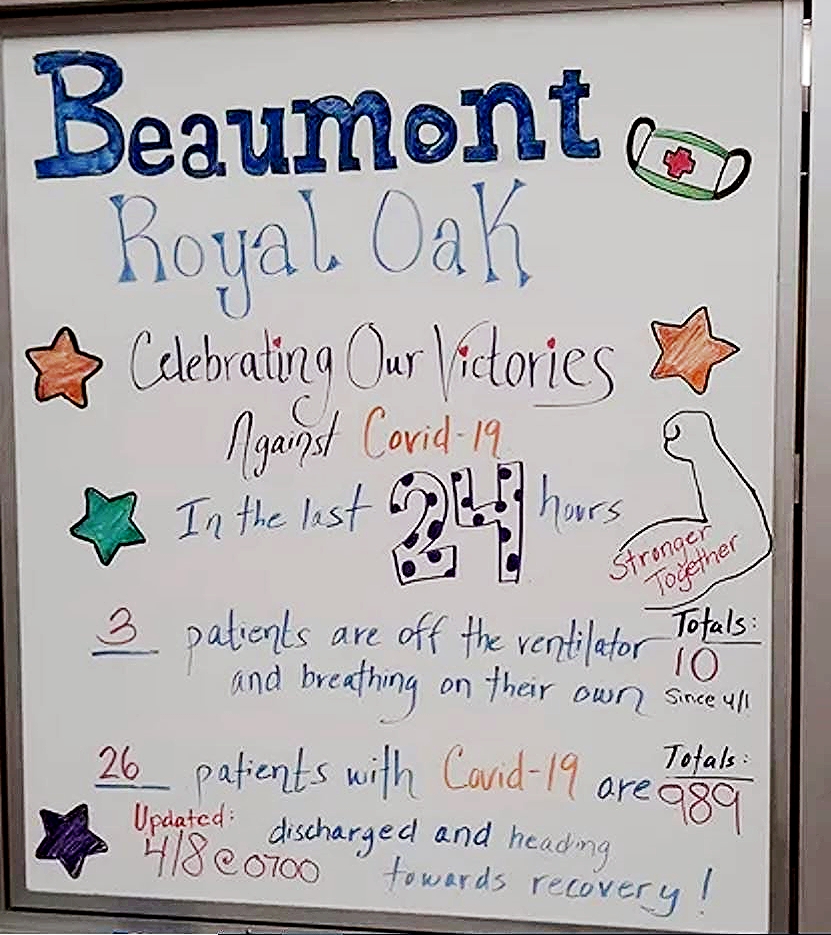 Beaumont
Royal Oak
Celebrating Our Victories
Against Covid-19
In the last 24 hours
Stronger
Together
3 patients are off the ventilator
and breathing on their own
Totals:
10
Since 4/1
26 patients with Covid-19 are
Totals:
989
discharged and heading
towards recovery!
Updated:
4/8 @ 0700